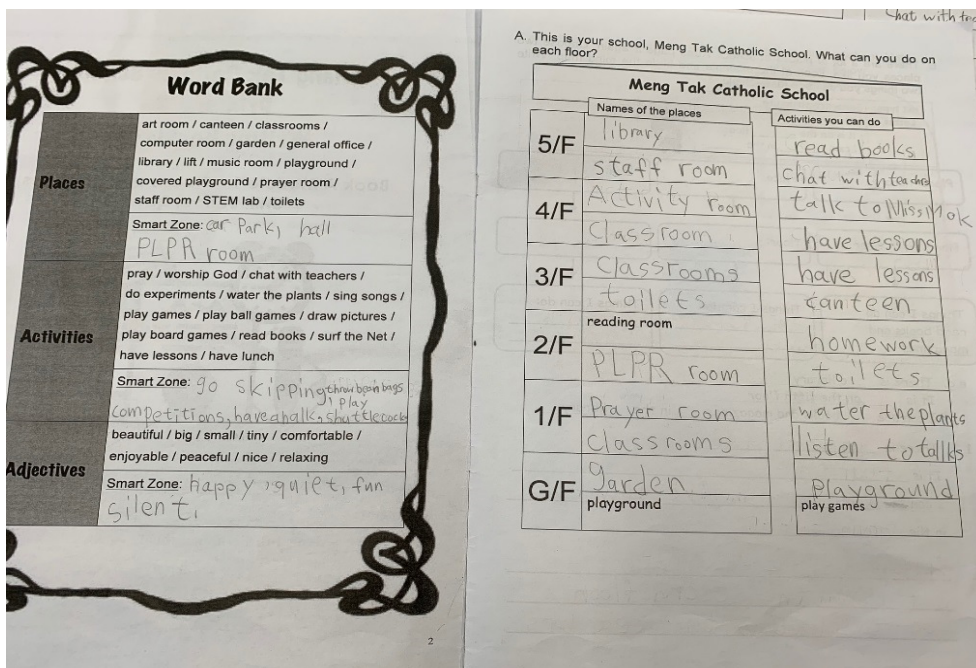 Word Bank
Places
art room / canteen / classrooms /
computer room / garden / general office /
library / lift / music room / playground /
covered playground / prayer room /
staff room / STEM lab / toilets
Smart Zone: car Park, hall
PLPR room
Activities
pray / worship God / chat with teachers /
do experiments / water the plants / sing songs /
play games / play ball games / draw pictures /
play board games / read books / surf the Net /
have lessons / have lunch
Smart Zone: go skipping, throw bean bags
play
competitions, have a halk, shuttlecock
Adjectives
beautiful / big / small / tiny / comfortable /
enjoyable / peaceful / nice / relaxing
Smart Zone: happy, quiet, fun
silent,
2
chat with
A. This is your school, Meng Tak Catholic School. What can you do on
each floor?
Meng Tak Catholic School
Names of the places
Activities you can do
5/F
library
read books
staff room
chat with teachers
4/F
Activity room
talk to Miss Mok
classroom
have lessons
3/F
classrooms
have lessons
toilets
canteen
2/F
reading room
homework
PLPR room
toilets
1/F
Prayer room
water the plants
classrooms
listen to tallks
G/F
garden
playground
playground
play games